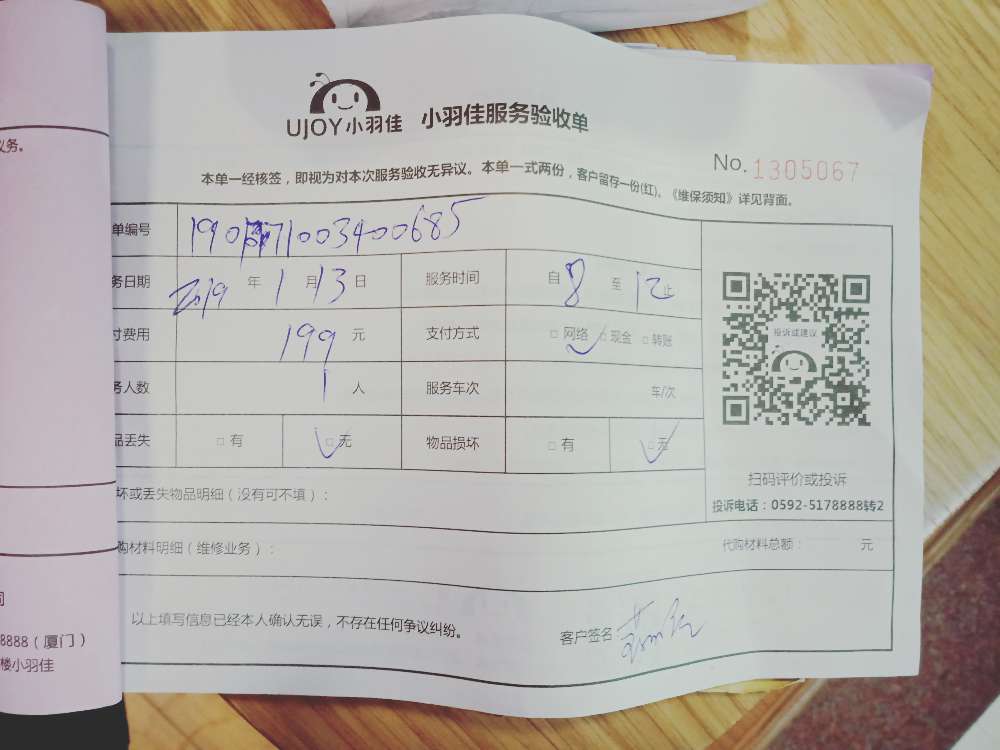 义务。
UJOY小羽佳 小羽佳服务验收单
No. 1305067
本单一经核签，即视为对本次服务验收无异议。本单一式两份，客户留存一份(红)。《维保须知》详见背面。
单编号
务日期 2019 年 1 月 13 日 服务时间 自 8 至 12 止
付费用 199 元 支付方式 □ 网络 □ 现金 □ 转账
务人数 1 人 服务车次 车/次
品丢失 □ 有 □ 无 物品损坏 □ 有 □ 无
投诉或建议
扫码评价或投诉
投诉电话：0592-5178888转2
坏或丢失物品明细（没有可不填）：
购材料明细（维修业务）： 代购材料总额： 元
以上填写信息已经本人确认无误，不存在任何争议纠纷。
客户签名：
司
8888（厦门）
楼小羽佳